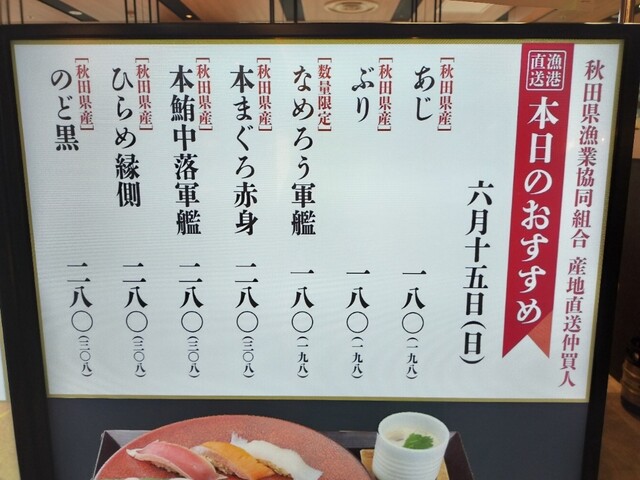 秋田県漁業協同組合 産地直送仲買人
漁港直送
本日のおすすめ
六月十五日(日)
[秋田県産]
あじ 一八〇(一九八)
[秋田県産]
ぶり 一八〇(一九八)
[数量限定]
なめろう軍艦 一八〇(一九八)
[秋田県産]
本まぐろ赤身 二八〇(三〇八)
[秋田県産]
本鮪中落軍艦 二八〇(三〇八)
[秋田県産]
ひらめ縁側 二八〇(三〇八)
[秋田県産]
のど黒 二八〇(三〇八)